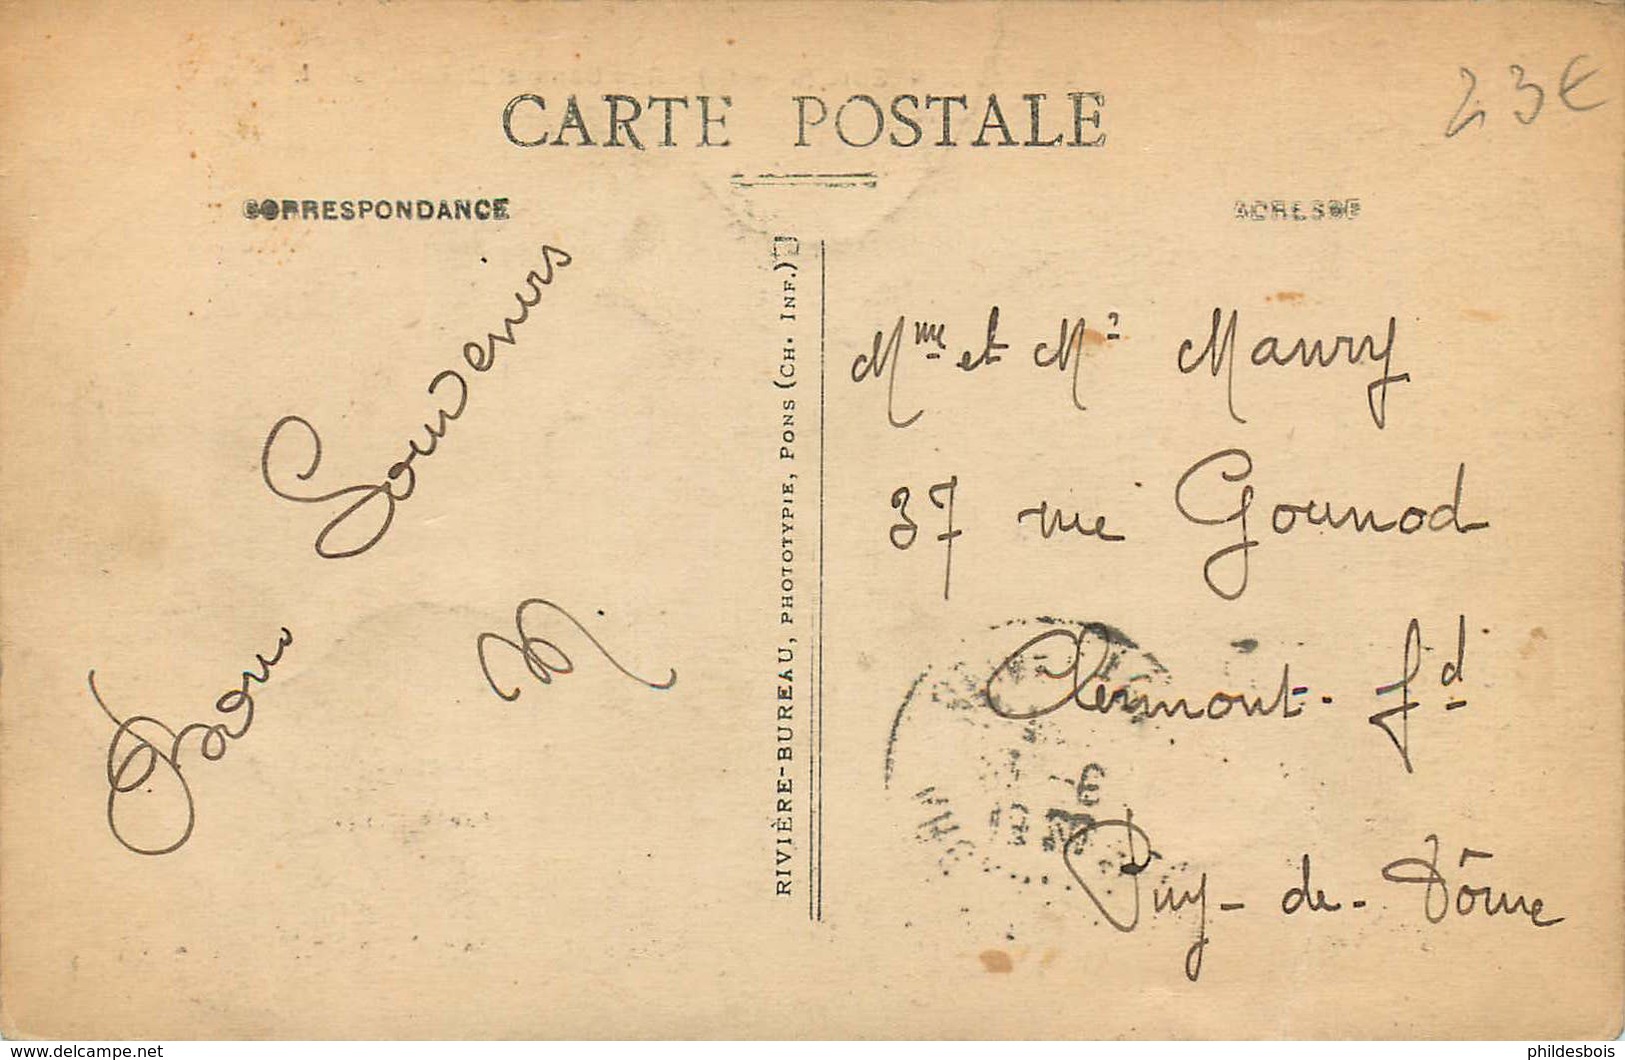 23€
CARTE POSTALE
CORRESPONDANCE
ADRESSE
Bons Souvenirs
M.
RIVIÈRE-BUREAU, PHOTOTYPIE, PONS (CH. INF.)
Mme et Mr Maury
37 rue Gounod
Clermont-Fd
Puy-de-Dôme
www.delcampe.net
phildesbois